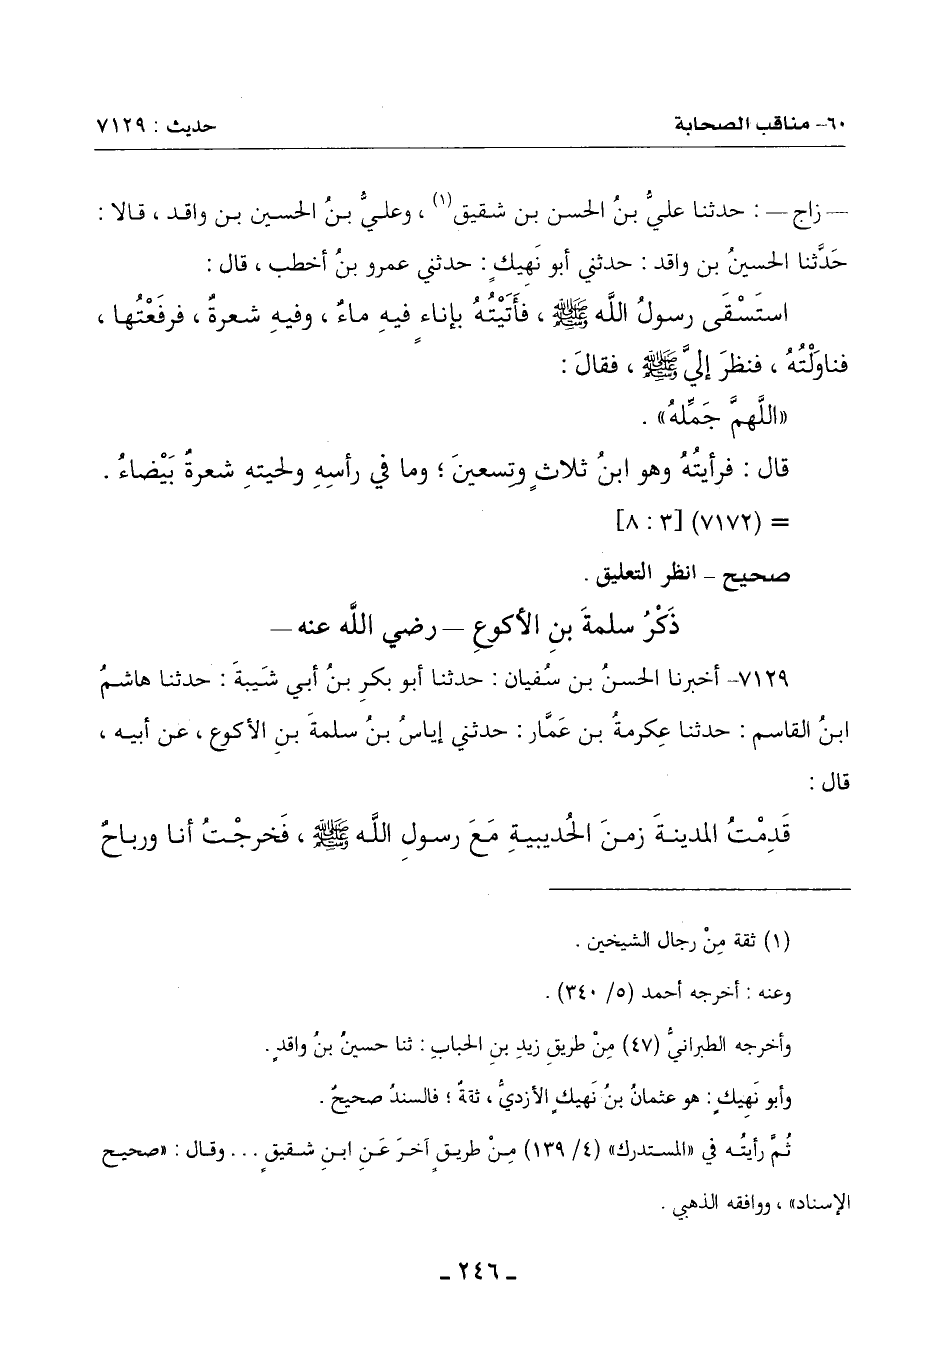 ٦٠- مناقب الصحابة
حديث : ٧١٢٩
— زاج — : حدثنا عليُّ بنُ الحسن بن شقيق(١) ، وعليُّ بنُ الحسين بن واقد ، قالا :
حَدَّثنا الحسينُ بن واقد : حدثني أبو نَهِيكٍ : حدثني عمرو بنُ أخطب ، قال :
استَسْقَى رسولُ اللَّه ﷺ ، فأَتَيْتُهُ بإناءٍ فيهِ ماءٌ ، وفيهِ شعرةٌ ، فرفَعْتُها ،
فناوَلْتُهُ ، فنظرَ إليَّ ﷺ ، فقالَ :
«اللَّهمَّ جَمِّلهُ» .
قال : فرأيتُهُ وهو ابنُ ثلاثٍ وتِسعينَ ؛ وما في رأسِهِ ولحيتهِ شعرةٌ بَيْضاءُ .
= (٧١٧٢) [٣ : ٨]
صحيح – انظر التعليق .
ذَكْرُ سلمةَ بنِ الأكوعِ — رضي اللَّه عنه —
٧١٢٩- أخبرنا الحسنُ بن سُفيان : حدثنا أبو بكرِ بنُ أبي شَيبةَ : حدثنا هاشمُ
ابنُ القاسم : حدثنا عِكرمةُ بن عَمَّار : حدثني إياسُ بنُ سلمةَ بنِ الأكوع ، عن أبيه ،
قال :
قَدِمْتُ المدينةَ زمنَ الحُديبيةِ مَعَ رسولِ اللَّه ﷺ ، فَخرجْتُ أنا ورباحٌ
(١) ثقة مِنْ رجال الشيخين .
وعنه : أخرجه أحمد (٥/ ٣٤٠) .
وأخرجه الطبرانيُّ (٤٧) مِنْ طريقِ زيدِ بنِ الحبابِ : ثنا حسينُ بنُ واقدٍ .
وأبو نَهِيكٍ : هو عثمانُ بنُ نَهيكٍ الأزديُّ ، ثقةٌ ؛ فالسندُ صحيحٌ .
ثُمَّ رأيتُه في «المستدرك» (٤/ ١٣٩) مِنْ طريقٍ آخرَ عَنِ ابنِ شقيقٍ ... وقال : «صحيح
الإسناد» ، ووافقه الذهبي .
- ٢٤٦ -